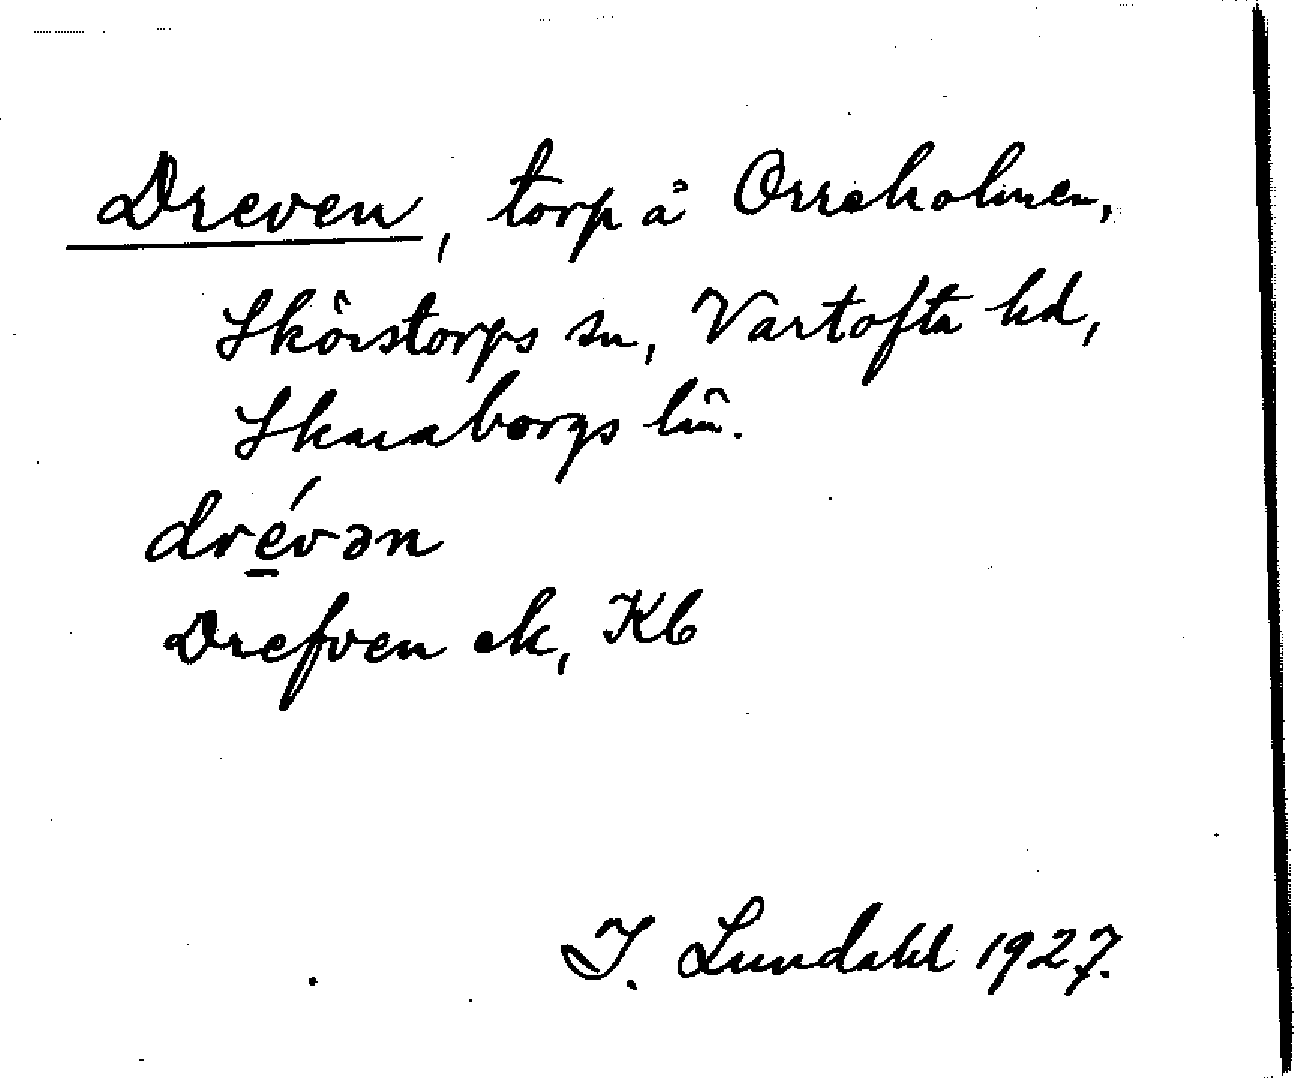 Dreven, torp å Orreholmen,
Skörstorps sn, Vartofta hd,
Skaraborgs län.
dré̲vən
Drefven ek, Kb
I. Lundahl 1927.